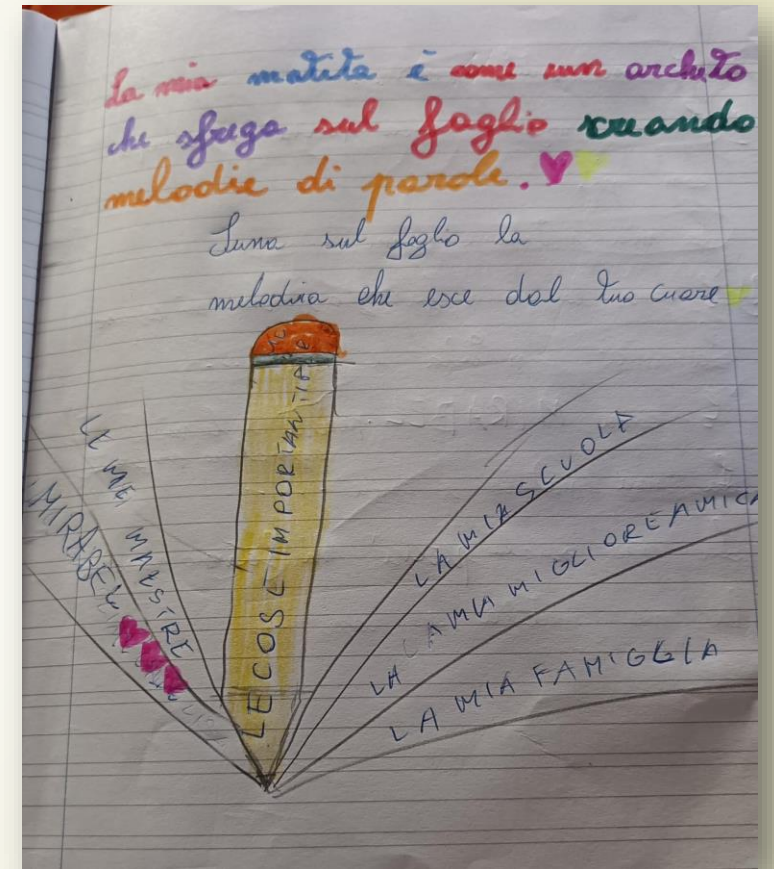 La mia matita è come un archeto
che sfrega sul foglio creando
melodie di parole.
Suna sul foglio la
melodiia che esce dal tuo cuore
LE COSE IMPORTANTI
LE MEI MAESTRE
MIRABEL
LA MIA SCUOLA
LA MIA MIGLIORE AMICA
LA MIA FAMIGLIA